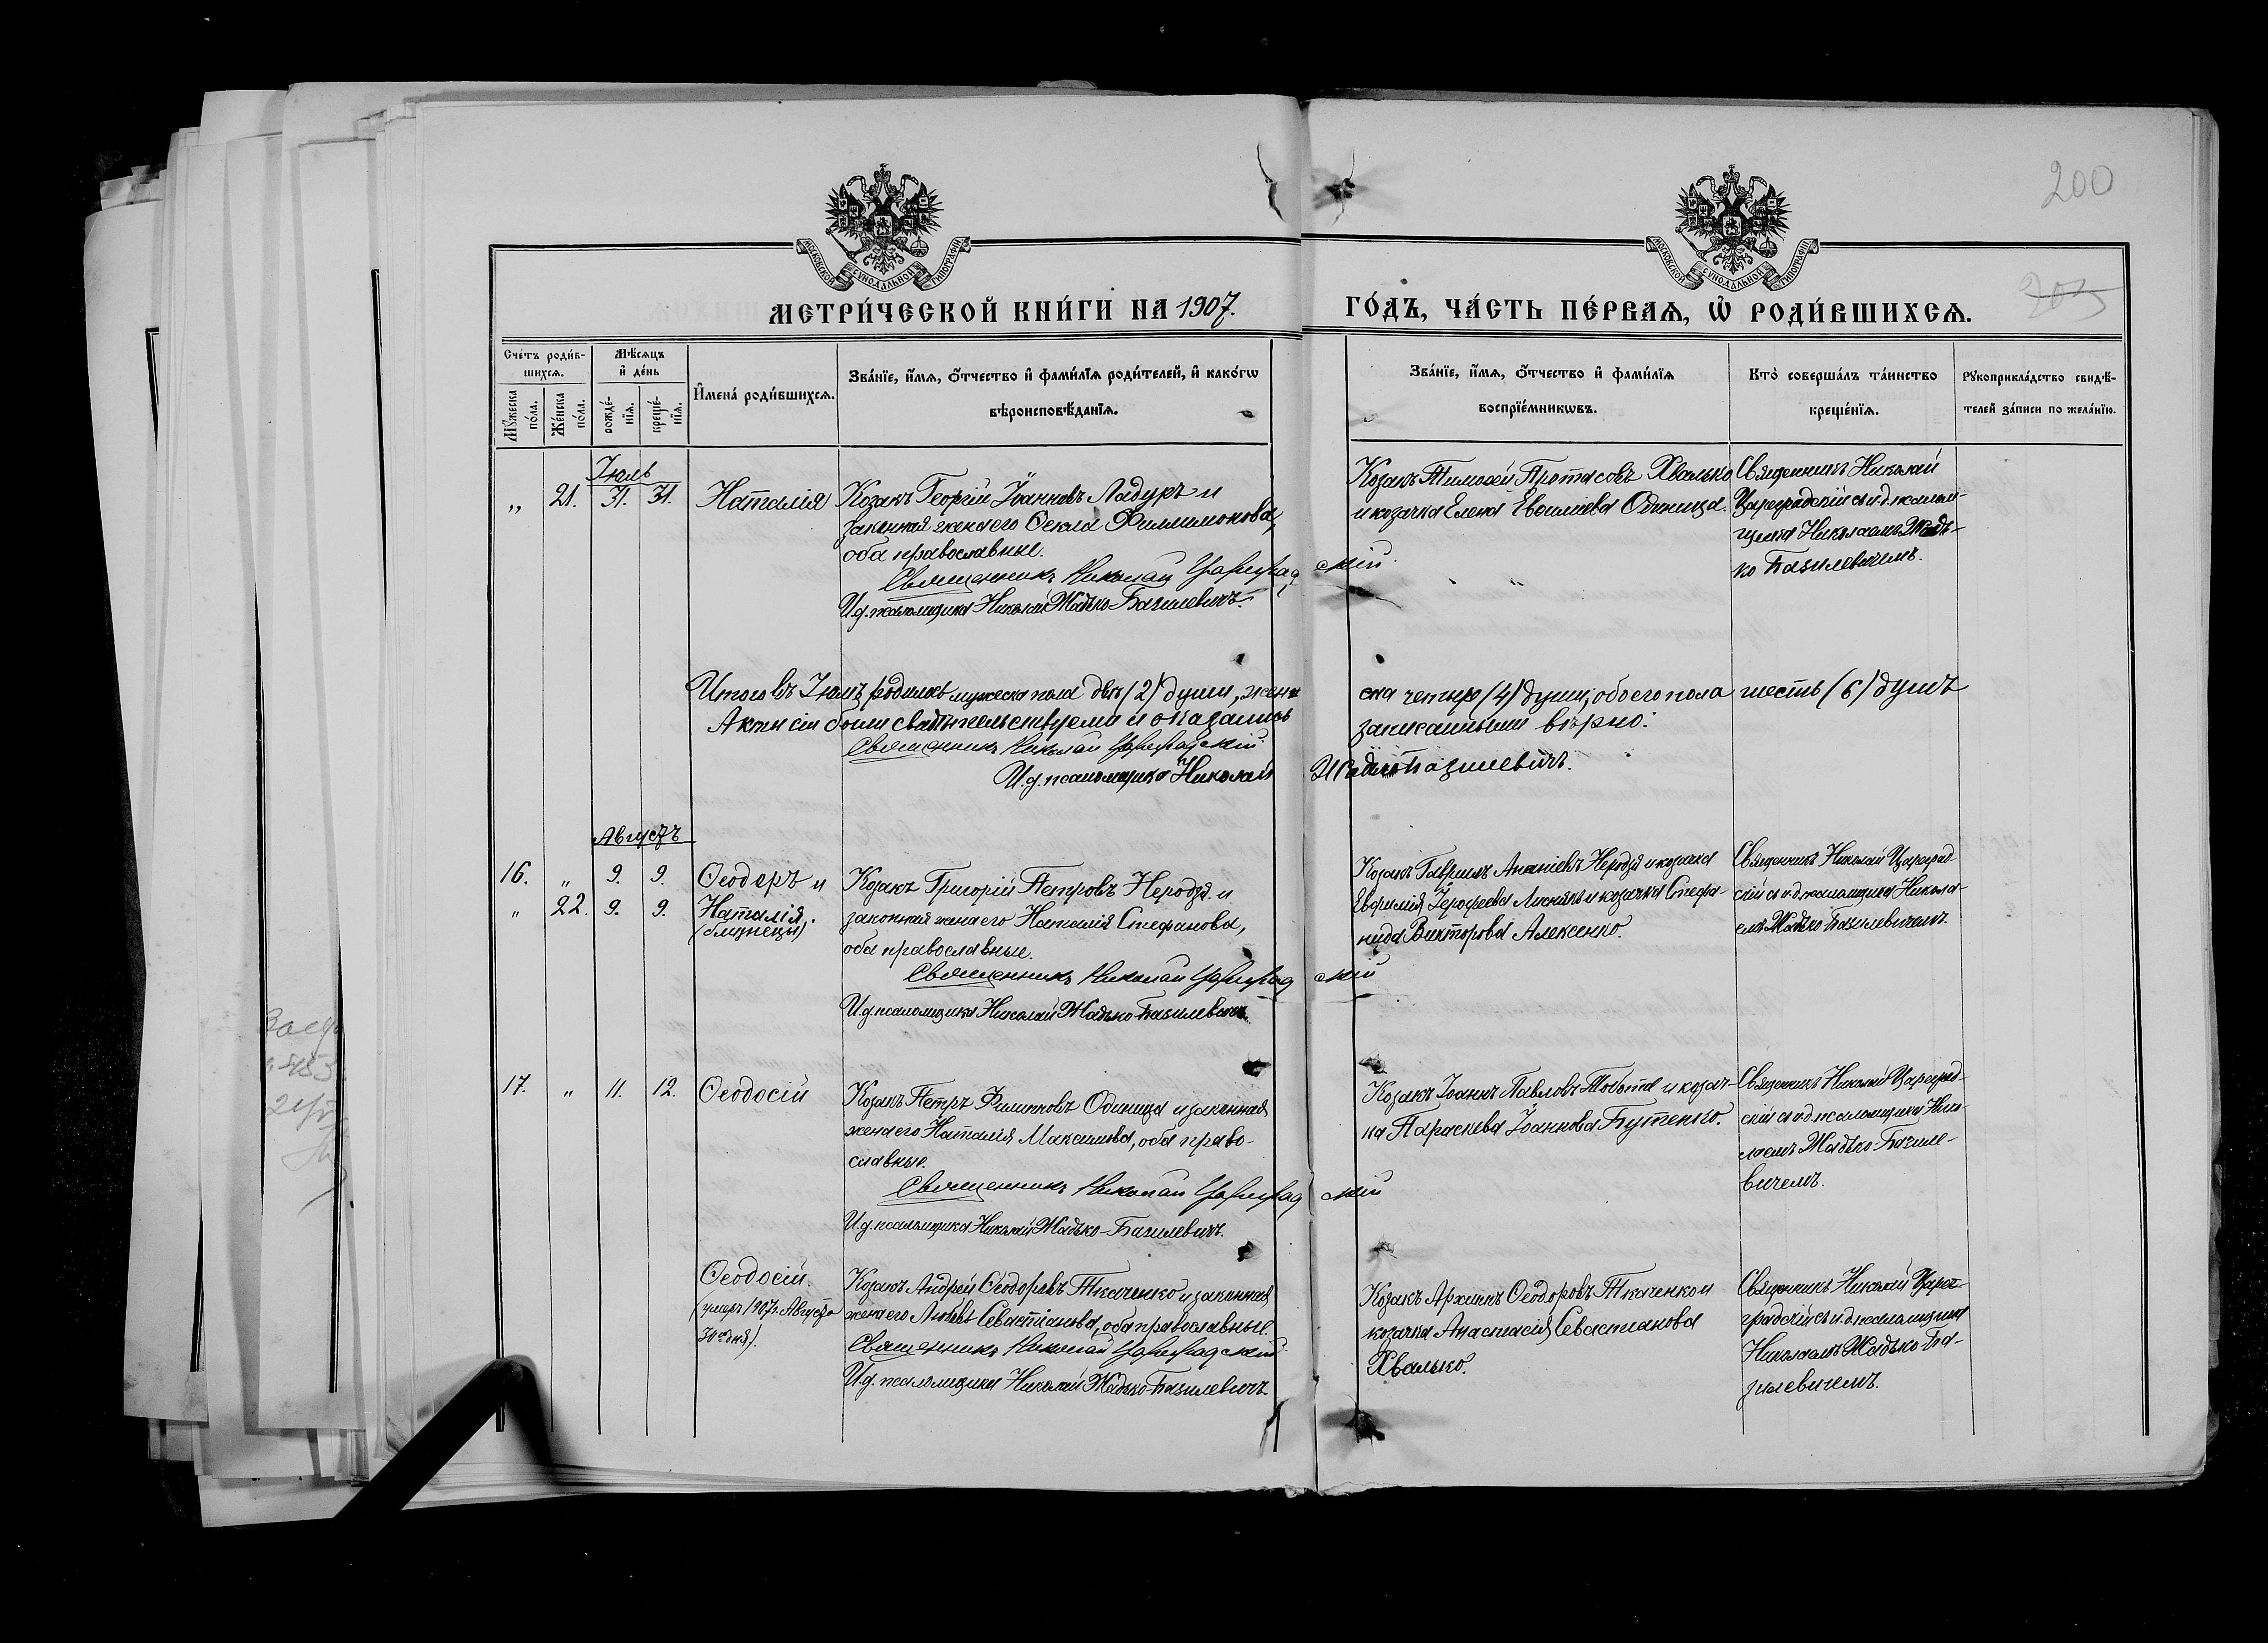 200
МОСКОВСКОЙ СѴНОДАЛЬНОЙ ТИПОГРАФІИ
МОСКОВСКОЙ СѴНОДАЛЬНОЙ ТИПОГРАФІИ
МЕТРИ́ЧЕСКОЙ КНИ́ГИ НА 1907.
ГО́ДЪ, ЧА́СТЬ ПЕ́РВАѦ, Ѡ҆ РОДИ́ВШИХСѦ.
205
Сче́тъ роди́в-
шихсѧ.
Мѣ́сѧцъ
и҆ де́нь
И҆мена̀ роди́вшихсѧ.
Зва́нїе, и҆́мѧ, ѻ҆́тчество и҆ фами́лїѧ роди́телей, и҆ како́гѡ
вѣроисповѣ́данїѧ.
Мꙋ́жеска
по́ла.
Же́нска
по́ла.
рожде́-
нїѧ.
креще́-
нїѧ.
Зва́нїе, и҆́мѧ, ѻ҆́тчество и҆ фами́лїѧ
воспрїе́мникѡвъ.
Кто̀ соверша́лъ та́инство
креще́нїѧ.
Рꙋкоприкла́дство свидѣ́-
телей за́писи по жела́нїю.
Іюль
„ 21. 31. 31. Наталія
Козакъ Георгій Іоанновъ Ладуръ и
законная жена его Ѳекла Филимонова,
оба православные.
Священникъ Николай Цареградскій
И.д. псаломщика Николай Жадько-Базилевичъ.
Козакъ Тимоѳей Протасовъ Хвалько
и козачка Елена Евѳиміева Одиница.
Священникъ Николай
Цареградскій съ и.д. псалом-
щика Николаемъ Жадь-
ко Базилевичемъ.
Итого въ Іюлѣ родилось мужеска пола двѣ (2) души, жен-
ска четыре (4) души, обоего пола шесть (6) душъ
Акты сіи были свидѣтельствуемы и оказались
записанными вѣрно.
Священникъ Николай Цареградскій
И.д. псаломщика Николай Жадько Базилевичъ.
Августъ
16. „ 9. 9. Ѳеодоръ и
„ 22. 9. 9. Наталія.
(близнецы)
Козакъ Григорій Петровъ Неродзя и
законная жена его Наталія Стефанова,
оба православные.
Священникъ Николай Цареградскій
И.д. псаломщика Николай Жадько-Базилевичъ.
Козакъ Гавріилъ Ананіевъ Неродзя и козачка
Евфимія Іерофеева и козачка Стефа-
нида Викторова Алексенко.
Священникъ Николай Цареград-
скій съ и.д. псаломщика Никола-
емъ Жадько-Базилевичемъ.
17. „ 11. 12. Ѳеодосій
Козакъ Петръ Филипповъ Одиница и законная
жена его Наталія Максимова, оба право-
славные.
Священникъ Николай Цареградскій
И.д. псаломщика Николай Жадько-Базилевичъ.
Козакъ Іоаннъ Павловъ Товста и козач-
ка Параскева Іоаннова Бутенко.
Священникъ Николай Цареград-
скій съ и.д. псаломщика Нико-
лаемъ Жадько-Базиле-
вичемъ.
Ѳеодосій.
(умеръ 1907 г. Августа
31го дня).
Козакъ Андрей Ѳеодоровъ Ткаченко и законная
жена его Любовь Севастіанова, оба православные.
Священникъ Николай Цареградскій
И.д. псаломщика Николай Жадько-Базилевичъ.
Козакъ Архипъ Ѳеодоровъ Ткаченко и
козачка Анастасія Севастіанова
Хвалько.
Священникъ Николай Царе-
градскій съ и.д. псаломщика
Николаемъ Жадько-Ба-
зилевичемъ.